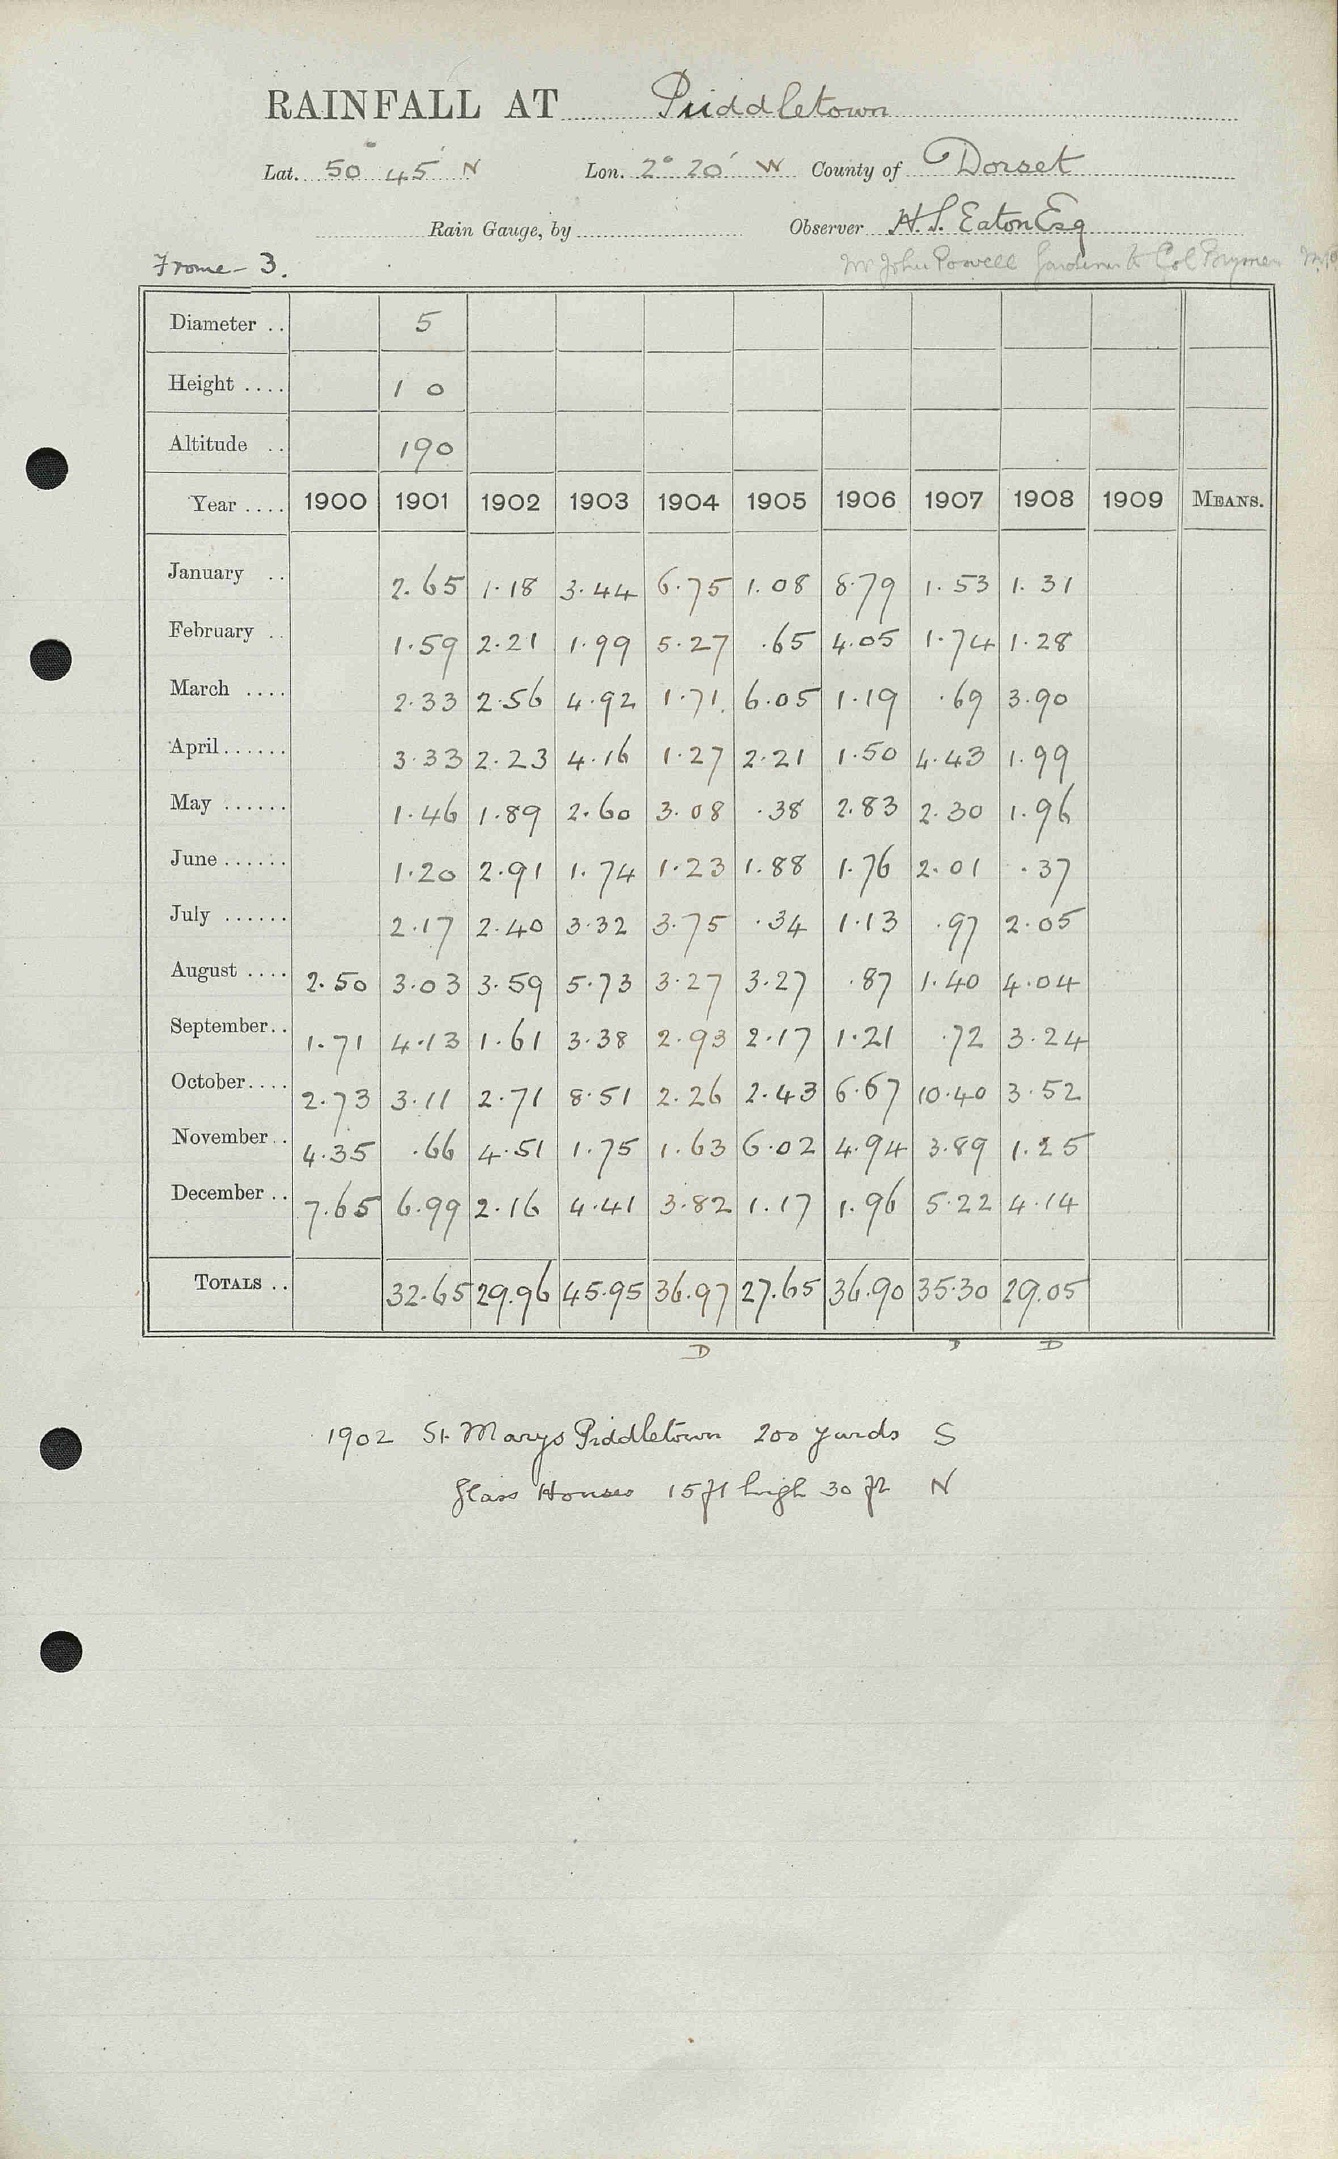 RAINFALL AT Puddletown
Lat. 50° 45' N Lon. 2° 20' W County of Dorset
Rain Gauge, by Observer H. S. Eaton Esq
Frome - 3. Mr John Powell Gardener to Col
Diameter .. 5
Height .... 1 0
Altitude .. 190
Year .... 1900 1901 1902 1903 1904 1905 1906 1907 1908 1909 MEANS.
January .. 2.65 1.18 3.44 6.75 1.08 8.79 1.53 1.31
February .. 1.59 2.21 1.99 5.27 .65 4.05 1.74 1.28
March .... 2.33 2.56 4.92 1.71 6.05 1.19 .69 3.90
April...... 3.33 2.23 4.16 1.27 2.21 1.50 4.43 1.99
May ...... 1.46 1.89 2.60 3.08 .38 2.83 2.30 1.96
June...... 1.20 2.91 1.74 1.23 1.88 1.76 2.01 .37
July ...... 2.17 2.40 3.32 3.75 .34 1.13 .97 2.05
August .... 2.50 3.03 3.59 5.73 3.27 3.27 .87 1.40 4.04
September.. 1.71 4.13 1.61 3.38 2.93 2.17 1.21 .72 3.24
October.... 2.73 3.11 2.71 8.51 2.26 2.43 6.67 10.40 3.52
November.. 4.35 .66 4.51 1.75 1.63 6.02 4.94 3.89 1.25
December .. 7.65 6.99 2.16 4.41 3.82 1.17 1.96 5.22 4.14
TOTALS .. 32.65 29.96 45.95 36.97 27.65 36.90 35.30 29.05
D D D
1902 St Marys Piddletown 200 yards S
Glass Houses 15 ft high 30 ft N